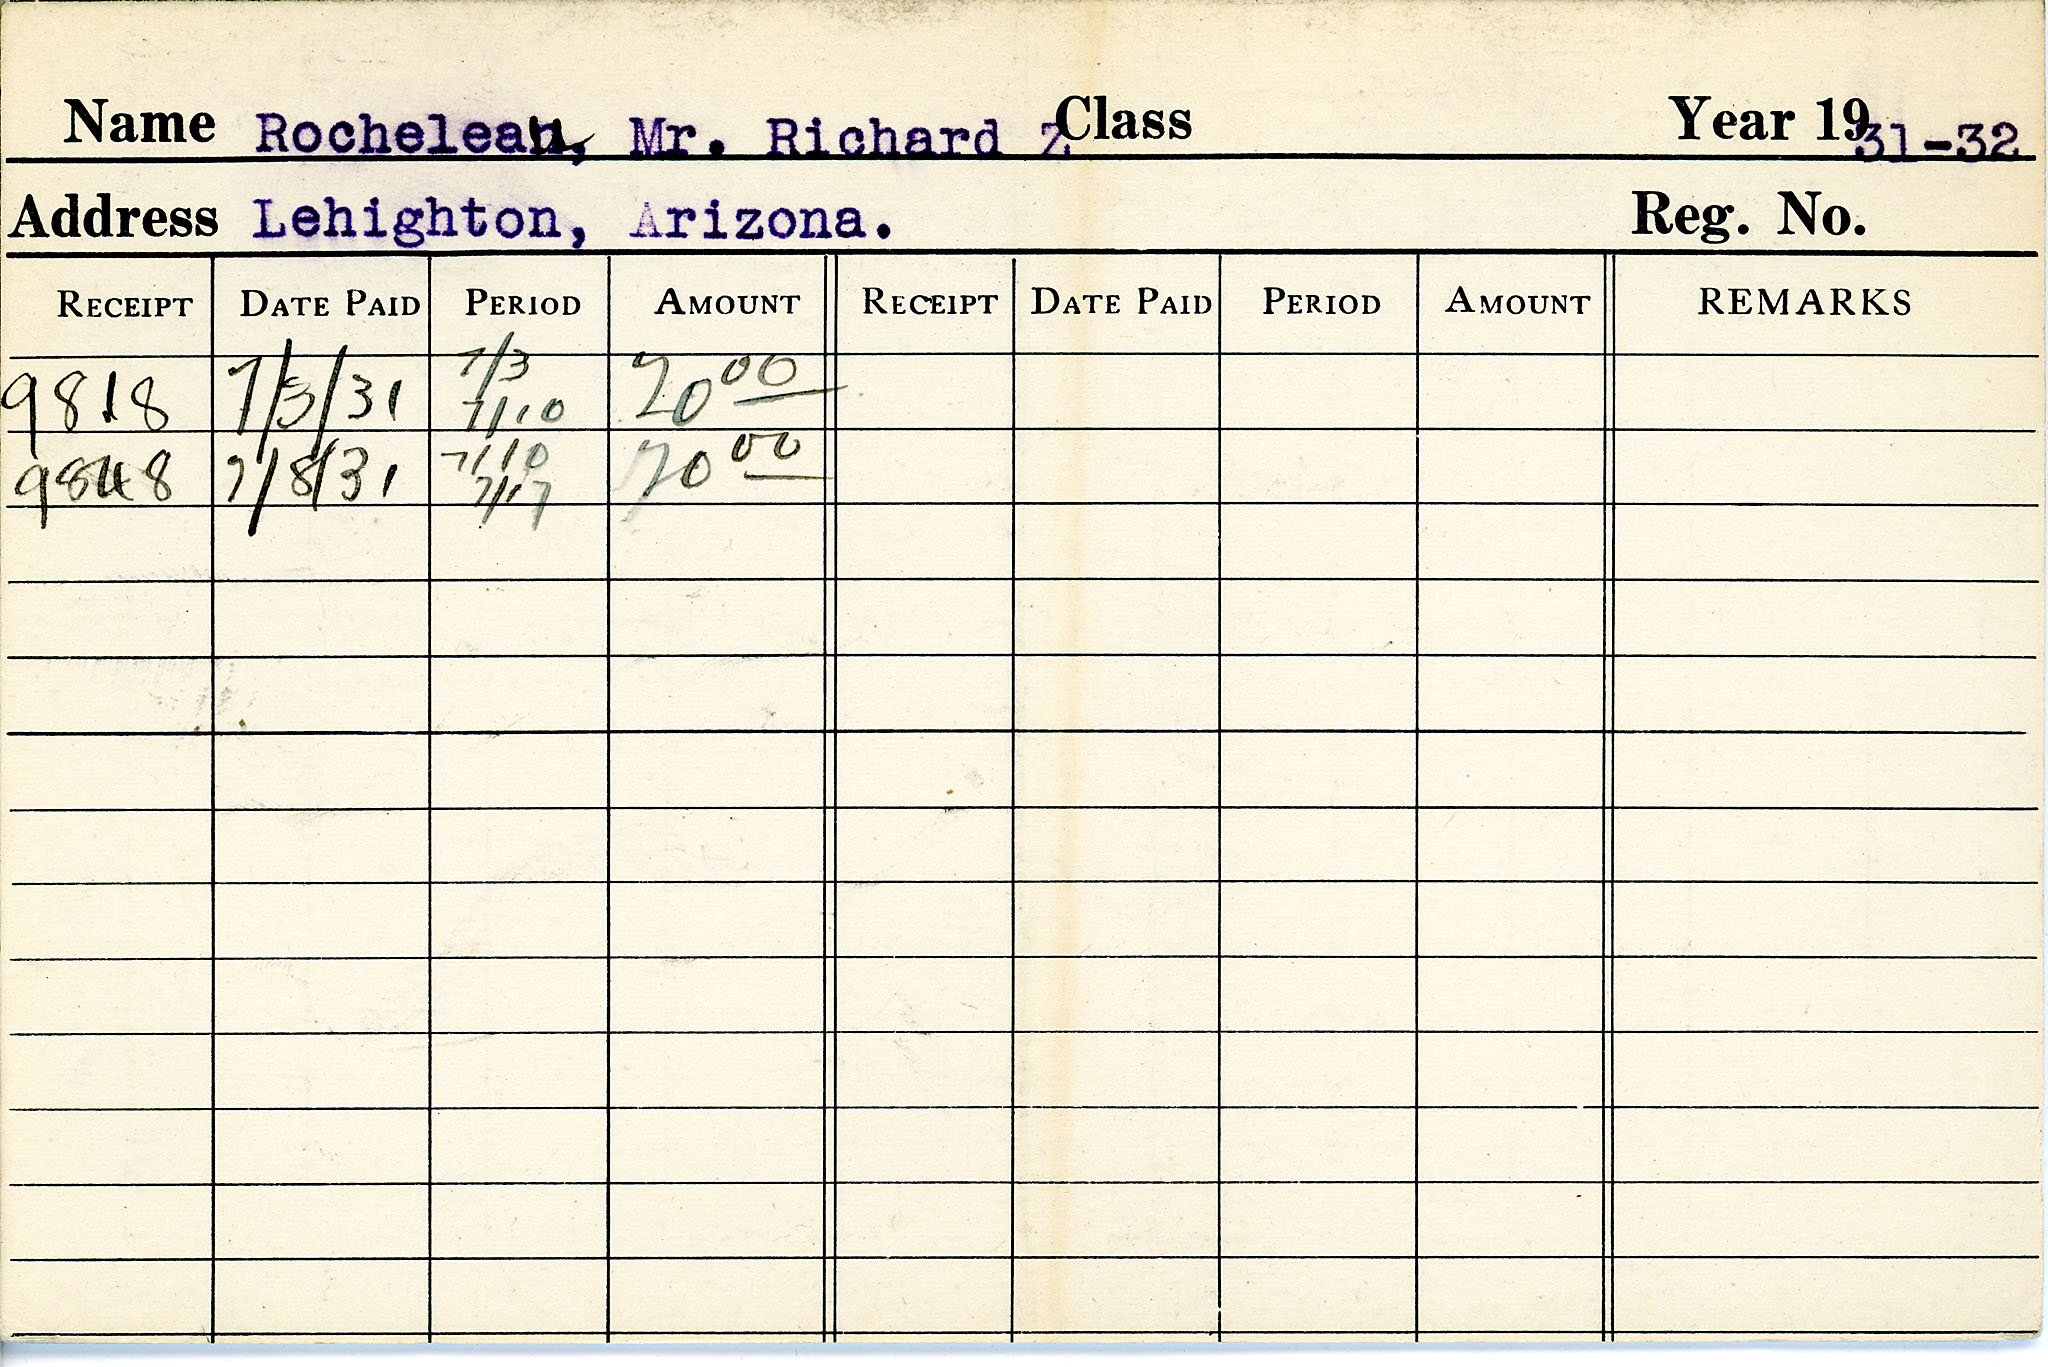 Name Rocheleau, Mr. Richard Z Class Year 1931-32
Address Lehighton, Arizona. Reg. No.
RECEIPT DATE PAID PERIOD AMOUNT RECEIPT DATE PAID PERIOD AMOUNT REMARKS
7/3
9818 7/3/31 7/10 20 00
7/10
9848 7/8/31 7/17 20 00